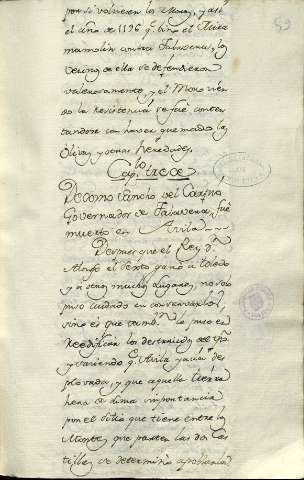 por si volviesen los Moros, y assi
el año de 1196 q. vino el Mira
mamolin contra Talavera, los
vecinos de ella se defendieron
valerosamente, y el Moro vien
do la resistencia se fue conten
tandose con haver quemado los
Olivares y otras Heredades.
Capitulo trece
De como Sancho del Carpio
Governador de Talavera, fue
muerto en Avila
Despues que el Rey Dn.
Alonso el Sexto ganó a Toledo
y a otros muchos lugares, no solo
puso cuidado en conservarlos,
sino es que tambn. lo puso en
Reedificar los destruidos
y viendo q. Avila yacia des
poblada, y que aquella tierra
hera de suma importancia
por el sitio que tiene entre los
Montes, que parten las dos Cas
tillas, se determinó a poblarla
59